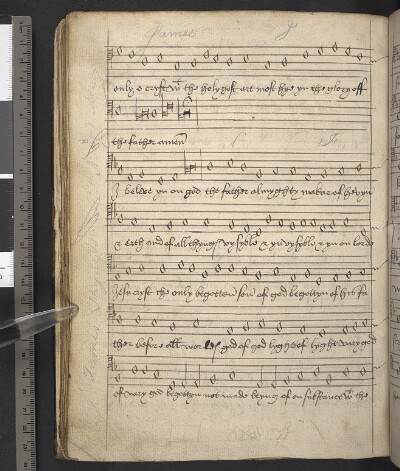 James
only o cryst wt the holy gost art most hye yn the glory off
the father amen
I beleve yn on god the father almyghty makar of hevyn
& erth and of all thyngs vysyble & ynvysyble & yn on lorde
Jesu cryst the only begotten son of god begottyn of hys fa
ther before all worlds god of god lyght of lyght very god
of very god begottyn not made beyng of on substance wt the